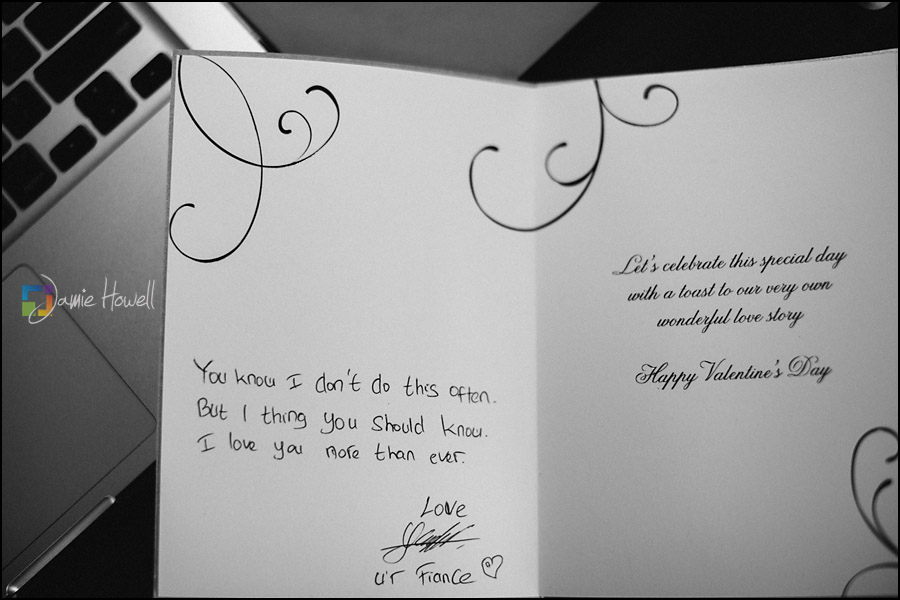 Jamie Howell
You know I don't do this often.
But I thing you should know.
I love you more than ever.
Love
u'r Fiance
Let's celebrate this special day
with a toast to our very own
wonderful love story
Happy Valentine's Day